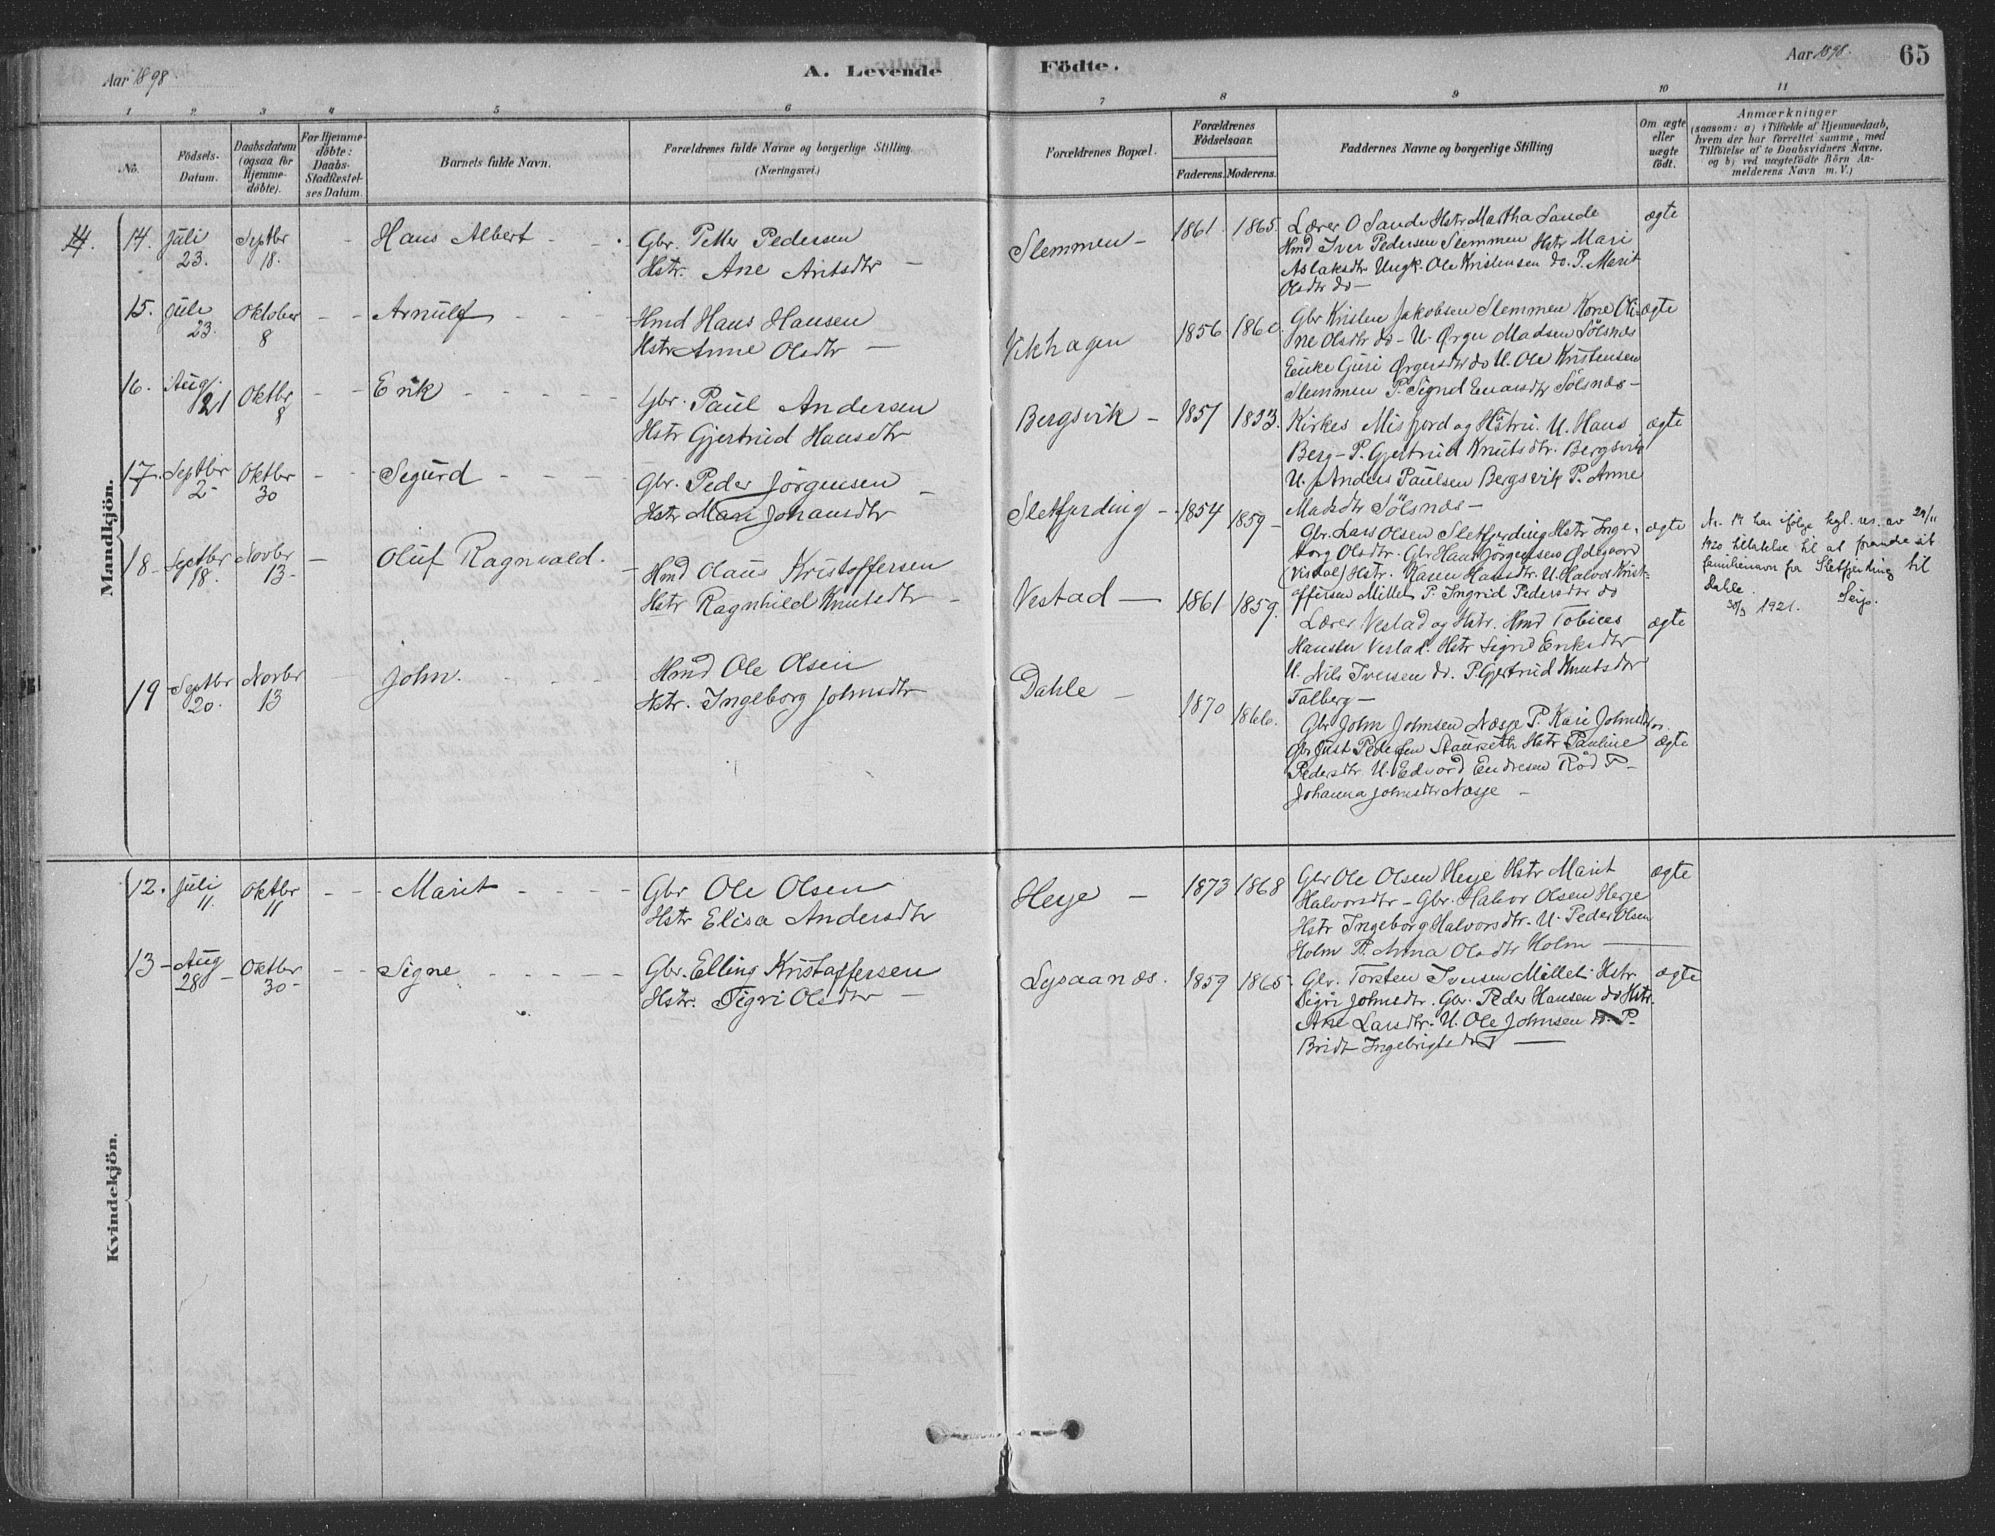 Aar 1898
A. Levende
Födte.
Aar 1898.
65
1 2 3 4 5 6 7 8 9 10 11
No.
Födsels-
Datum.
Daabsdatum
(ogsaa for
Hjemme-
döbte).
For Hjemme-
döbte:
Daabs-
Stadfæstel-
ses Datum.
Barnets fulde Navn.
Forældrenes fulde Navne og borgerlige Stilling.
(Næringsvei.)
Forældrenes Bopæl.
Forældrenes
Födselsaar.
Faderens. Moderens.
Faddernes Navne og borgerlige Stilling
Om ægte
eller
uægte
født.
Anmærkninger
(saasom: a) i Tilfælde af Hjemmedaab,
hvem der har forrettet samme, med
Tilføielse af to Daabsvidners Navne,
og b) ved uægtefödte Börn An-
melderens Navn m. V.)
Mandkjön.
14.
14. Juli
23.
Septbr
18.
Hans Albert
Gbr. Petter Pedersen
Hstr. Ane Antsdtr
Slemmen
1861. 1865.
Lærer O Sande Hstr Martha Sande
Hmd Iver Pedersen Slemmen Hstr Mari
Aslaksdtr Ungk. Ole Kristensen do. P. Marit
Olsdtr do
ægte
15. Juli
23.
Oktober
8
Arnulf
Hmd Hans Hansen
Hstr Anne Olsdtr
Vikhagen
1856.
Gbr Kristen Jakobsen Slemmen Kone Oli-
ne Olsdtr do - U. Ørgn Madsen Sølsnæs
Enke Guri Ørgersdtr do U. Ole Kristensen
Slemmen P. Signd Enarsdtr Sølsnæs
ægte
16. Aug.
21
Oktbr
8
Erik
Gbr. Paul Andersen
Hstr Gjertrud Hansdtr
Bergsvik
1857
Kirkes. Misfjord og Hstru. U. Hans
Berg - P. Gjertrud Knutsdtr. Bergsvik
U. Anders Paulsen Bergsvik P. Anne
Madsdtr Sølsnæs
ægte
17. Septbr
2
Oktbr
30
Sigurd
Gbr. Peder Jörgensen
Hstr Mari Johansdtr
Sletfjerding
1854 1859
Gbr. Lars Olsen Sletfjerding Hstr Inge-
borg Olsdtr. Gbr Hans Jörgensen Ødegaard
(Vistdal) Hstr. Karen Hansdtr. U. Halvor Krist-
offersen Millet P. Ingrid Pedersdtr do
ægte
Nr. 17 har ifølge kgl. res. av 29/11
1920 tillatelse til at forandre sit
familienavn fra Sletfjerding til
Dahle.
30/3 1921. Seip.
18 Septbr
18.
Novbr
13
Oluf Ragnvald.
Hmd Olaus Kristoffersen
Hstr Ragnhild Knutsdtr
Vestad
1861 1859.
Lærer Vestad og Hstr. Hmd Tobias
Hansen Vestad. Hstr Signe Eriksdtr
U. Nils Iversen do. P. Gjertrud Knutsdtr
Talberg
ægte
19 Septbr
20.
Novbr
13
John.
Hmd Ole Olsen
Hstr. Ingeborg Johnsdtr
Dahle
1870 1866.
Gbr John Johnsen Næsje P. Kari Johnsdtr do.
Gbr Just Pedersen Staurseth Hstr Pauline
Pedersdtr U. Edvard Endresen Rød P
Johanna Johnsdtr Næsje
ægte
Kvindekjön.
12. Juli
11.
Oktbr
11
Marit
Gbr Ole Olsen
Hstr Elisa Andersdtr
Heje
1873 1868
Gbr Ole Olsen Heje Hstr Marit
Halvorsdtr - Gbr. Halvor Olsen Herje
Hstr Ingeborg Halvorsdtr. U. Peder Olsen
Holm P. Anna Olsdtr Holm
ægte
13 Aug
28
Oktbr
30
Signe
Gbr. Elling Kristoffersen
Hstr. Sigri Olsdtr
Lysaanæs.
1859 1865
Gbr. Torsten Iversen Millet. Hstr
Sigri Johnsdtr. Gbr. Peder Hansen do Hstr.
Ane Larsdtr. U. Ole Johnsen do. P.
Bridt Ingebrigtsdtr
ægte